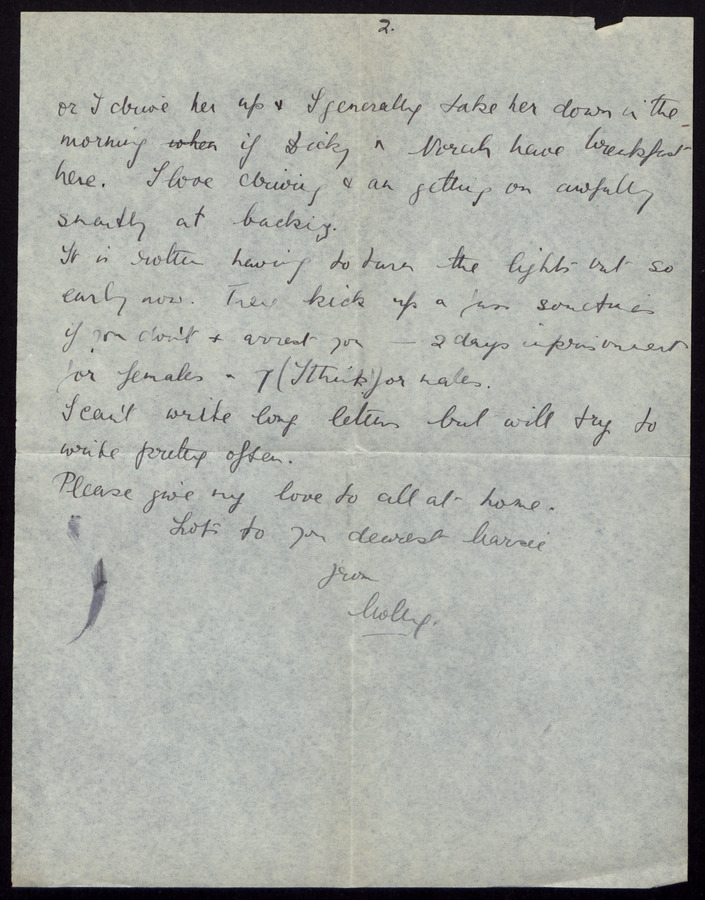 2.
or I drive her up & I generally take her down in the
morning when if Dicky & Norah have breakfast
here. I love driving & am getting on awfully
smartly at backing.
It is rotten having to turn the lights out so
early now. They kick up a fuss sometimes
if you don't & arrest you — 2 days imprisonment
for females & 7 (I think) for males.
I can't write long letters but will try to
write pretty often.
Please give my love to all at home.
Lots to you dearest
from
Molly.